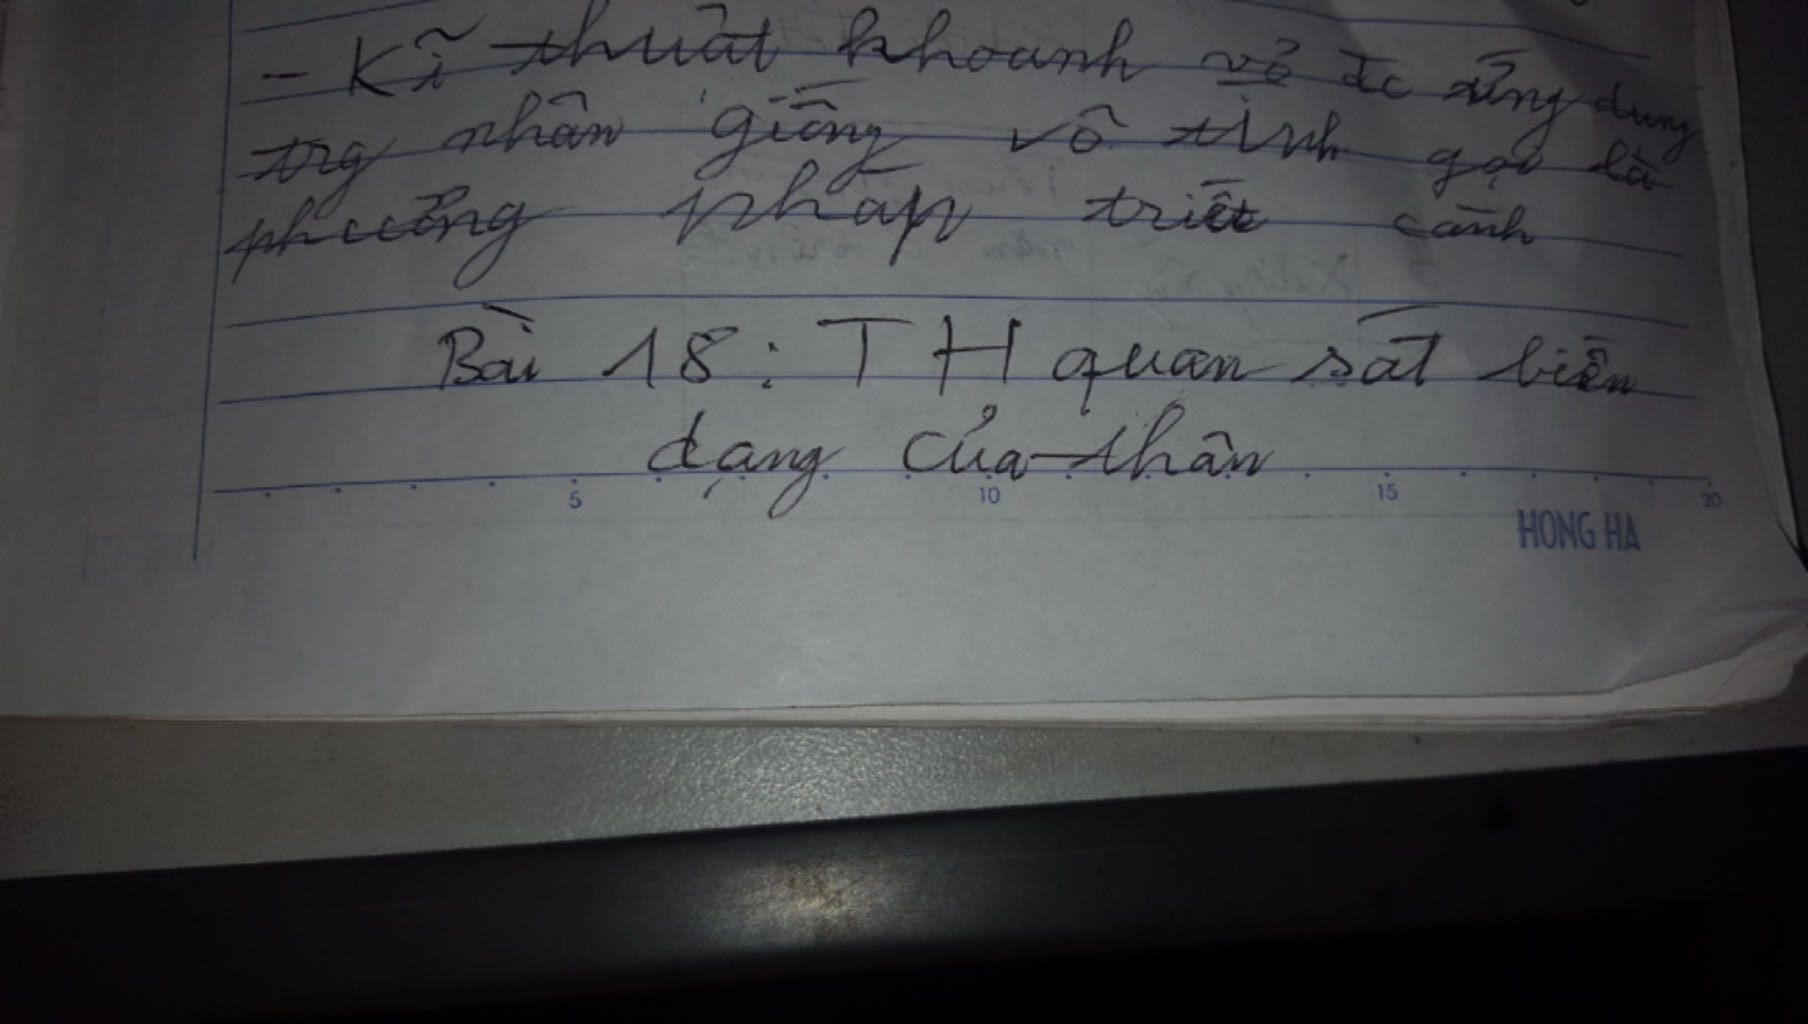 - Kĩ thuât khoanh vỏ đc ứng dung
trg nhân giống vô tình gọi là
phương pháp triết cành
Bài 18: TH quan sát biến
dạng của thân
5 10 15 20
HONG HA